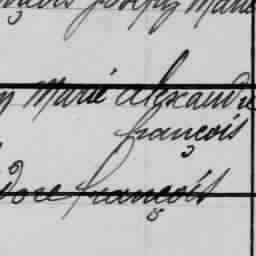 Joseph Marie
Marie Alexandre
françois
françois